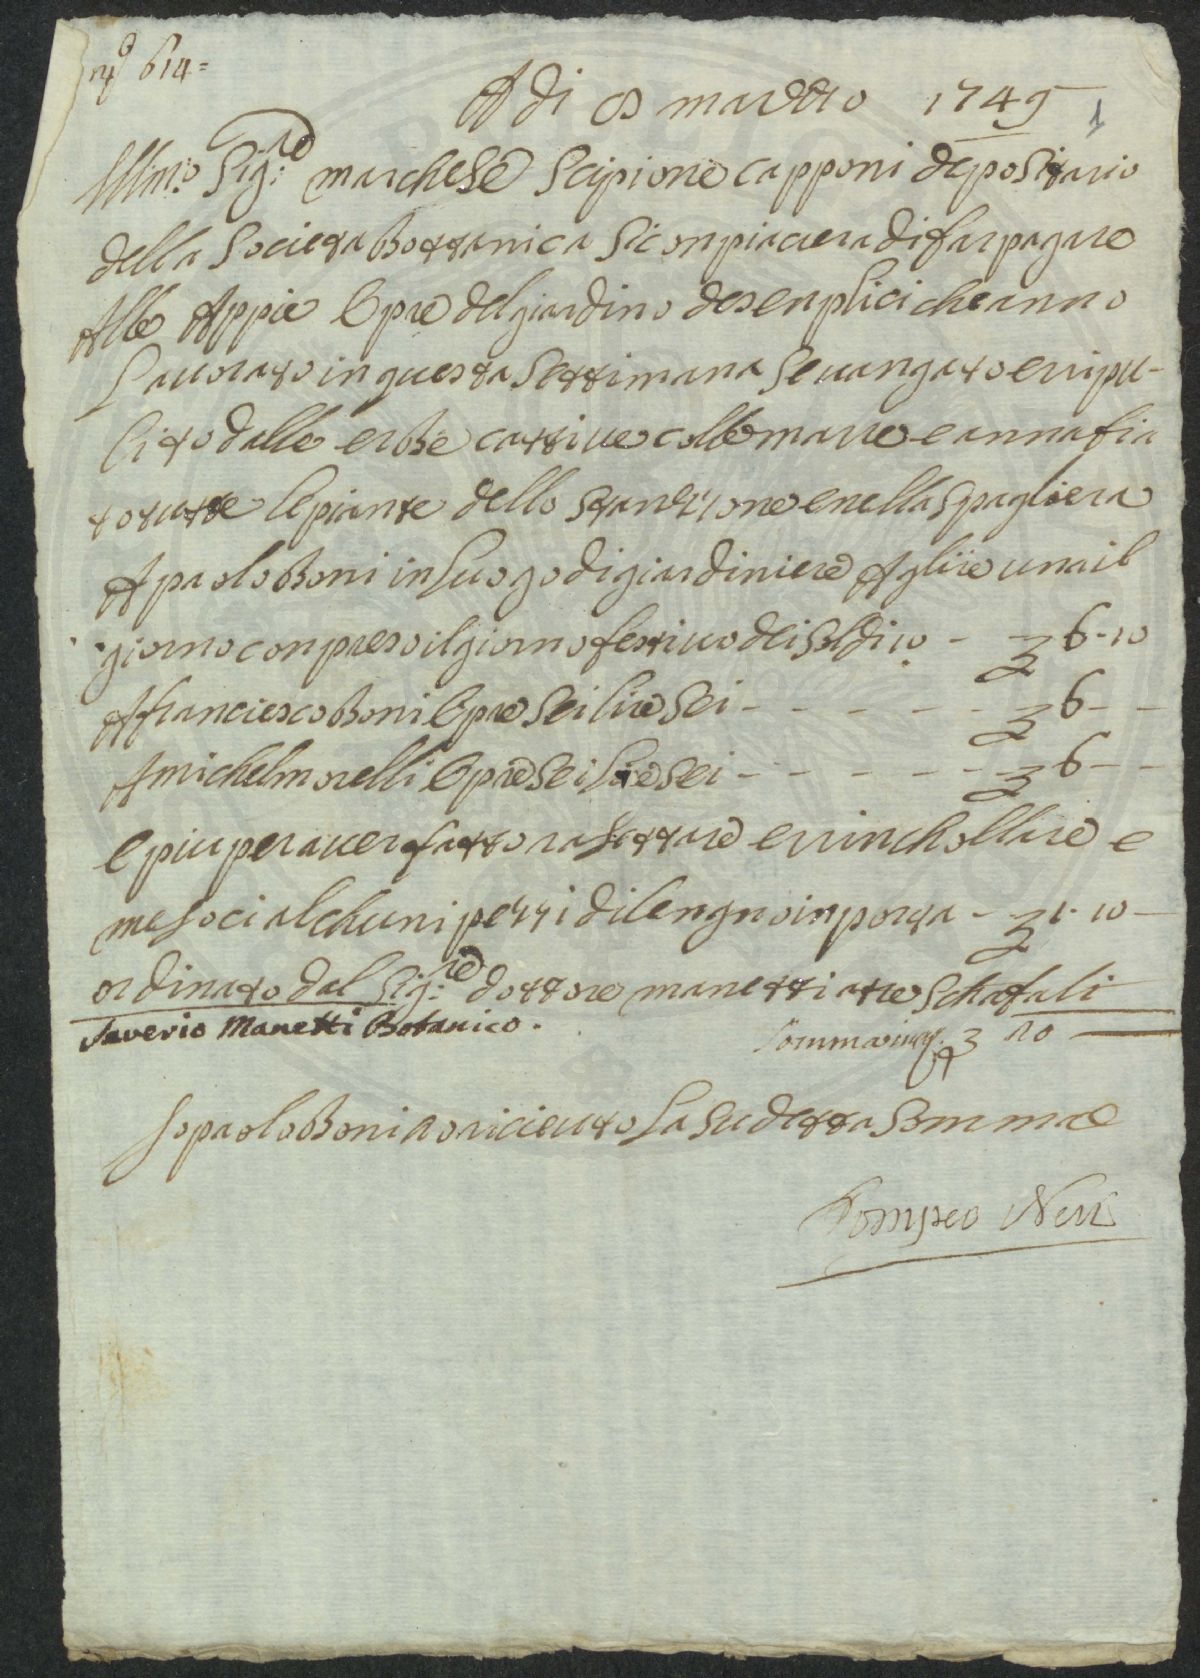 nº 614=
A di 8 marzzo 1749
1
Illmo: Sig:re marchese Scipione capponi depositario
della Societa Bottanica Si conpiacera di far pagare
Alle Appie Opre del giardino de senplici che anno
Lavorato in questa Settimana Se vangato e rripu-
lito dalle erbe cattive colle marre e annafia
to tutte le piante dello stanzzone e nella spagliera
A paolo Boni in Luogo di giardiniere A glire una il
giorno conpreso il giorno festivo dei soldi 10 - £ 6-10
A franciesco Boni Opre Sei lire Sei - - - - - £ 6 - -
A michel morelli Opre Sei Lire Sei - - - - - £ 6 - -
E piu per aver fatto rasettare e rrinchollare e
mesoci alchuni pezzi di lengno in porta - £ 1-10 -
ordinato dal Sig:re dottore manetti a tre schafali
Saverio Manetti Botanico.
Sommario £ 20
Io paolo Boni o riceuto La Sudetta Somma
Pompeo Neri